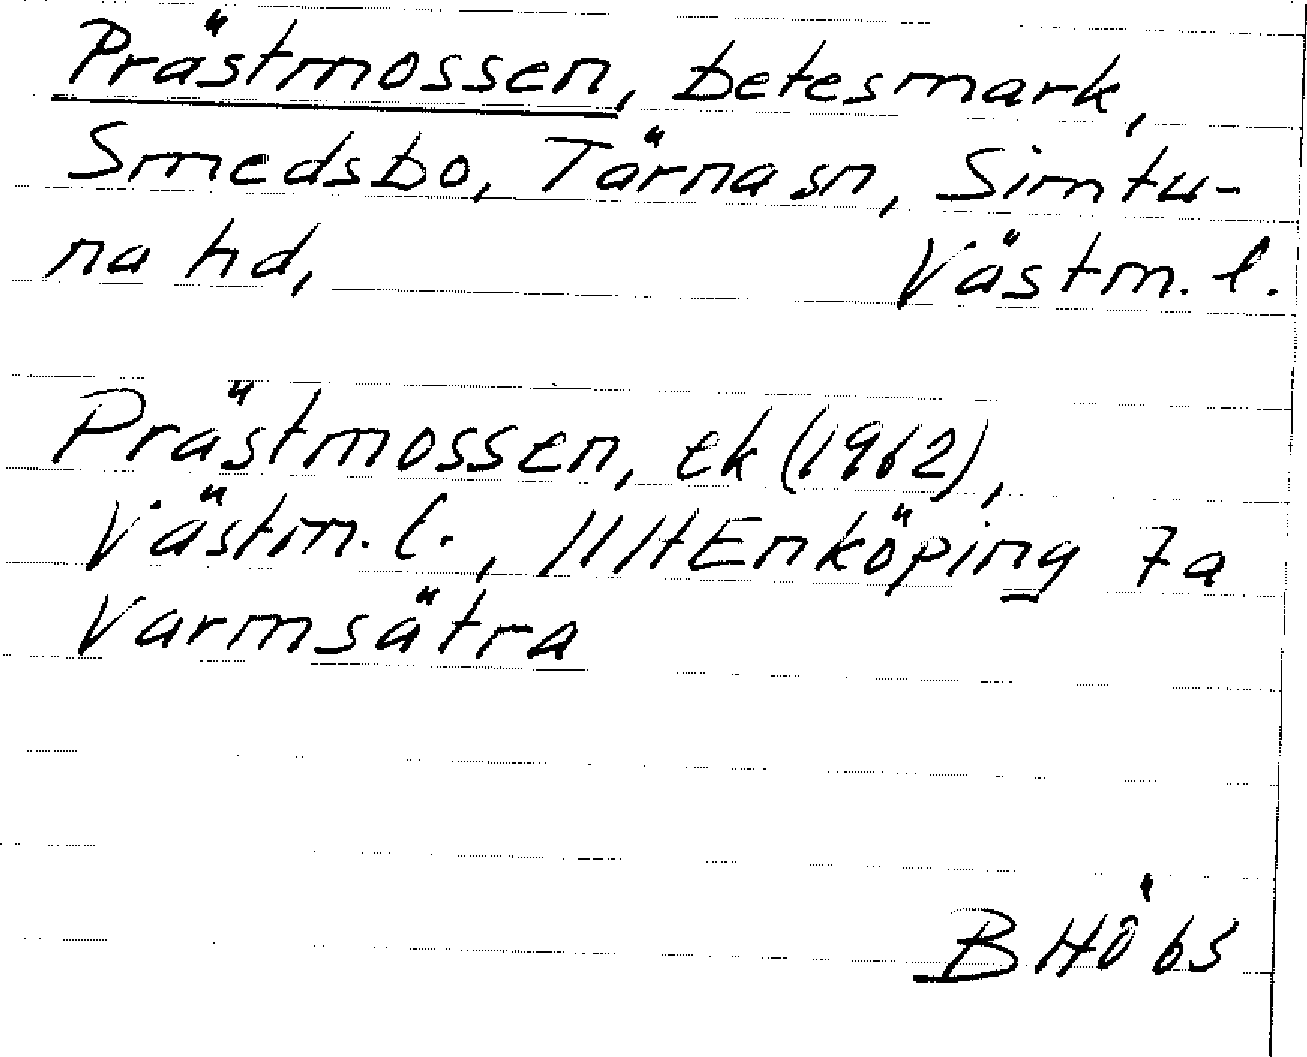 Prästmossen, betesmark,
Smedsbo, Tärna sn, Simtu-
na hd, Västm. l.
Prästmossen, ek (1962),
Västm. l., 11H Enköping 7a
Varmsätra
BHÖ 65